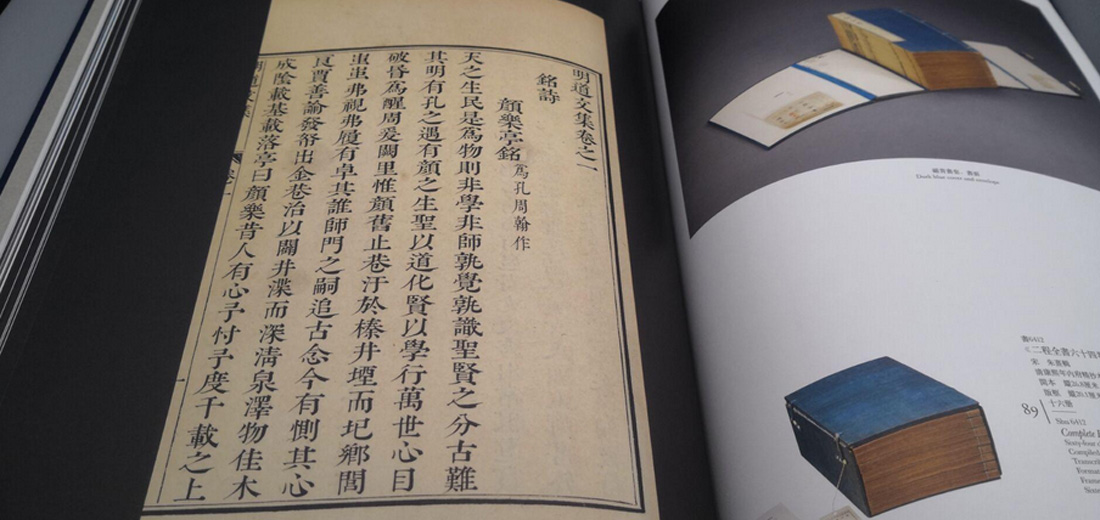 明道文集卷之一
銘詩
顔樂亭銘 爲孔周翰作
天之生民是爲物則非學非師孰覺孰識聖賢之分古難
其明有孔之遇有顔之生聖以道化賢以學行萬世心目
破昏爲醒周爰闕里惟顔舊止巷汙於榛井堙而圮鄉閭
蚩蚩弗視弗履有卓其誰師門之嗣追古念今有惻其心
良賈善諭發帑出金巷治以闢井渫而深淸泉澤物佳木
成陰載基載落亭曰顔樂昔人有心予忖予度千載之上
藏青書衣、書函
Dark blue cover and envelope
書6412
二程全書六十四
宋 朱熹輯
清康熙年內府精抄
開本 縱26.8厘米
版框 縱20.1厘米
十六冊
89
Shu 6412
Complete
Sixty-four
Compiled